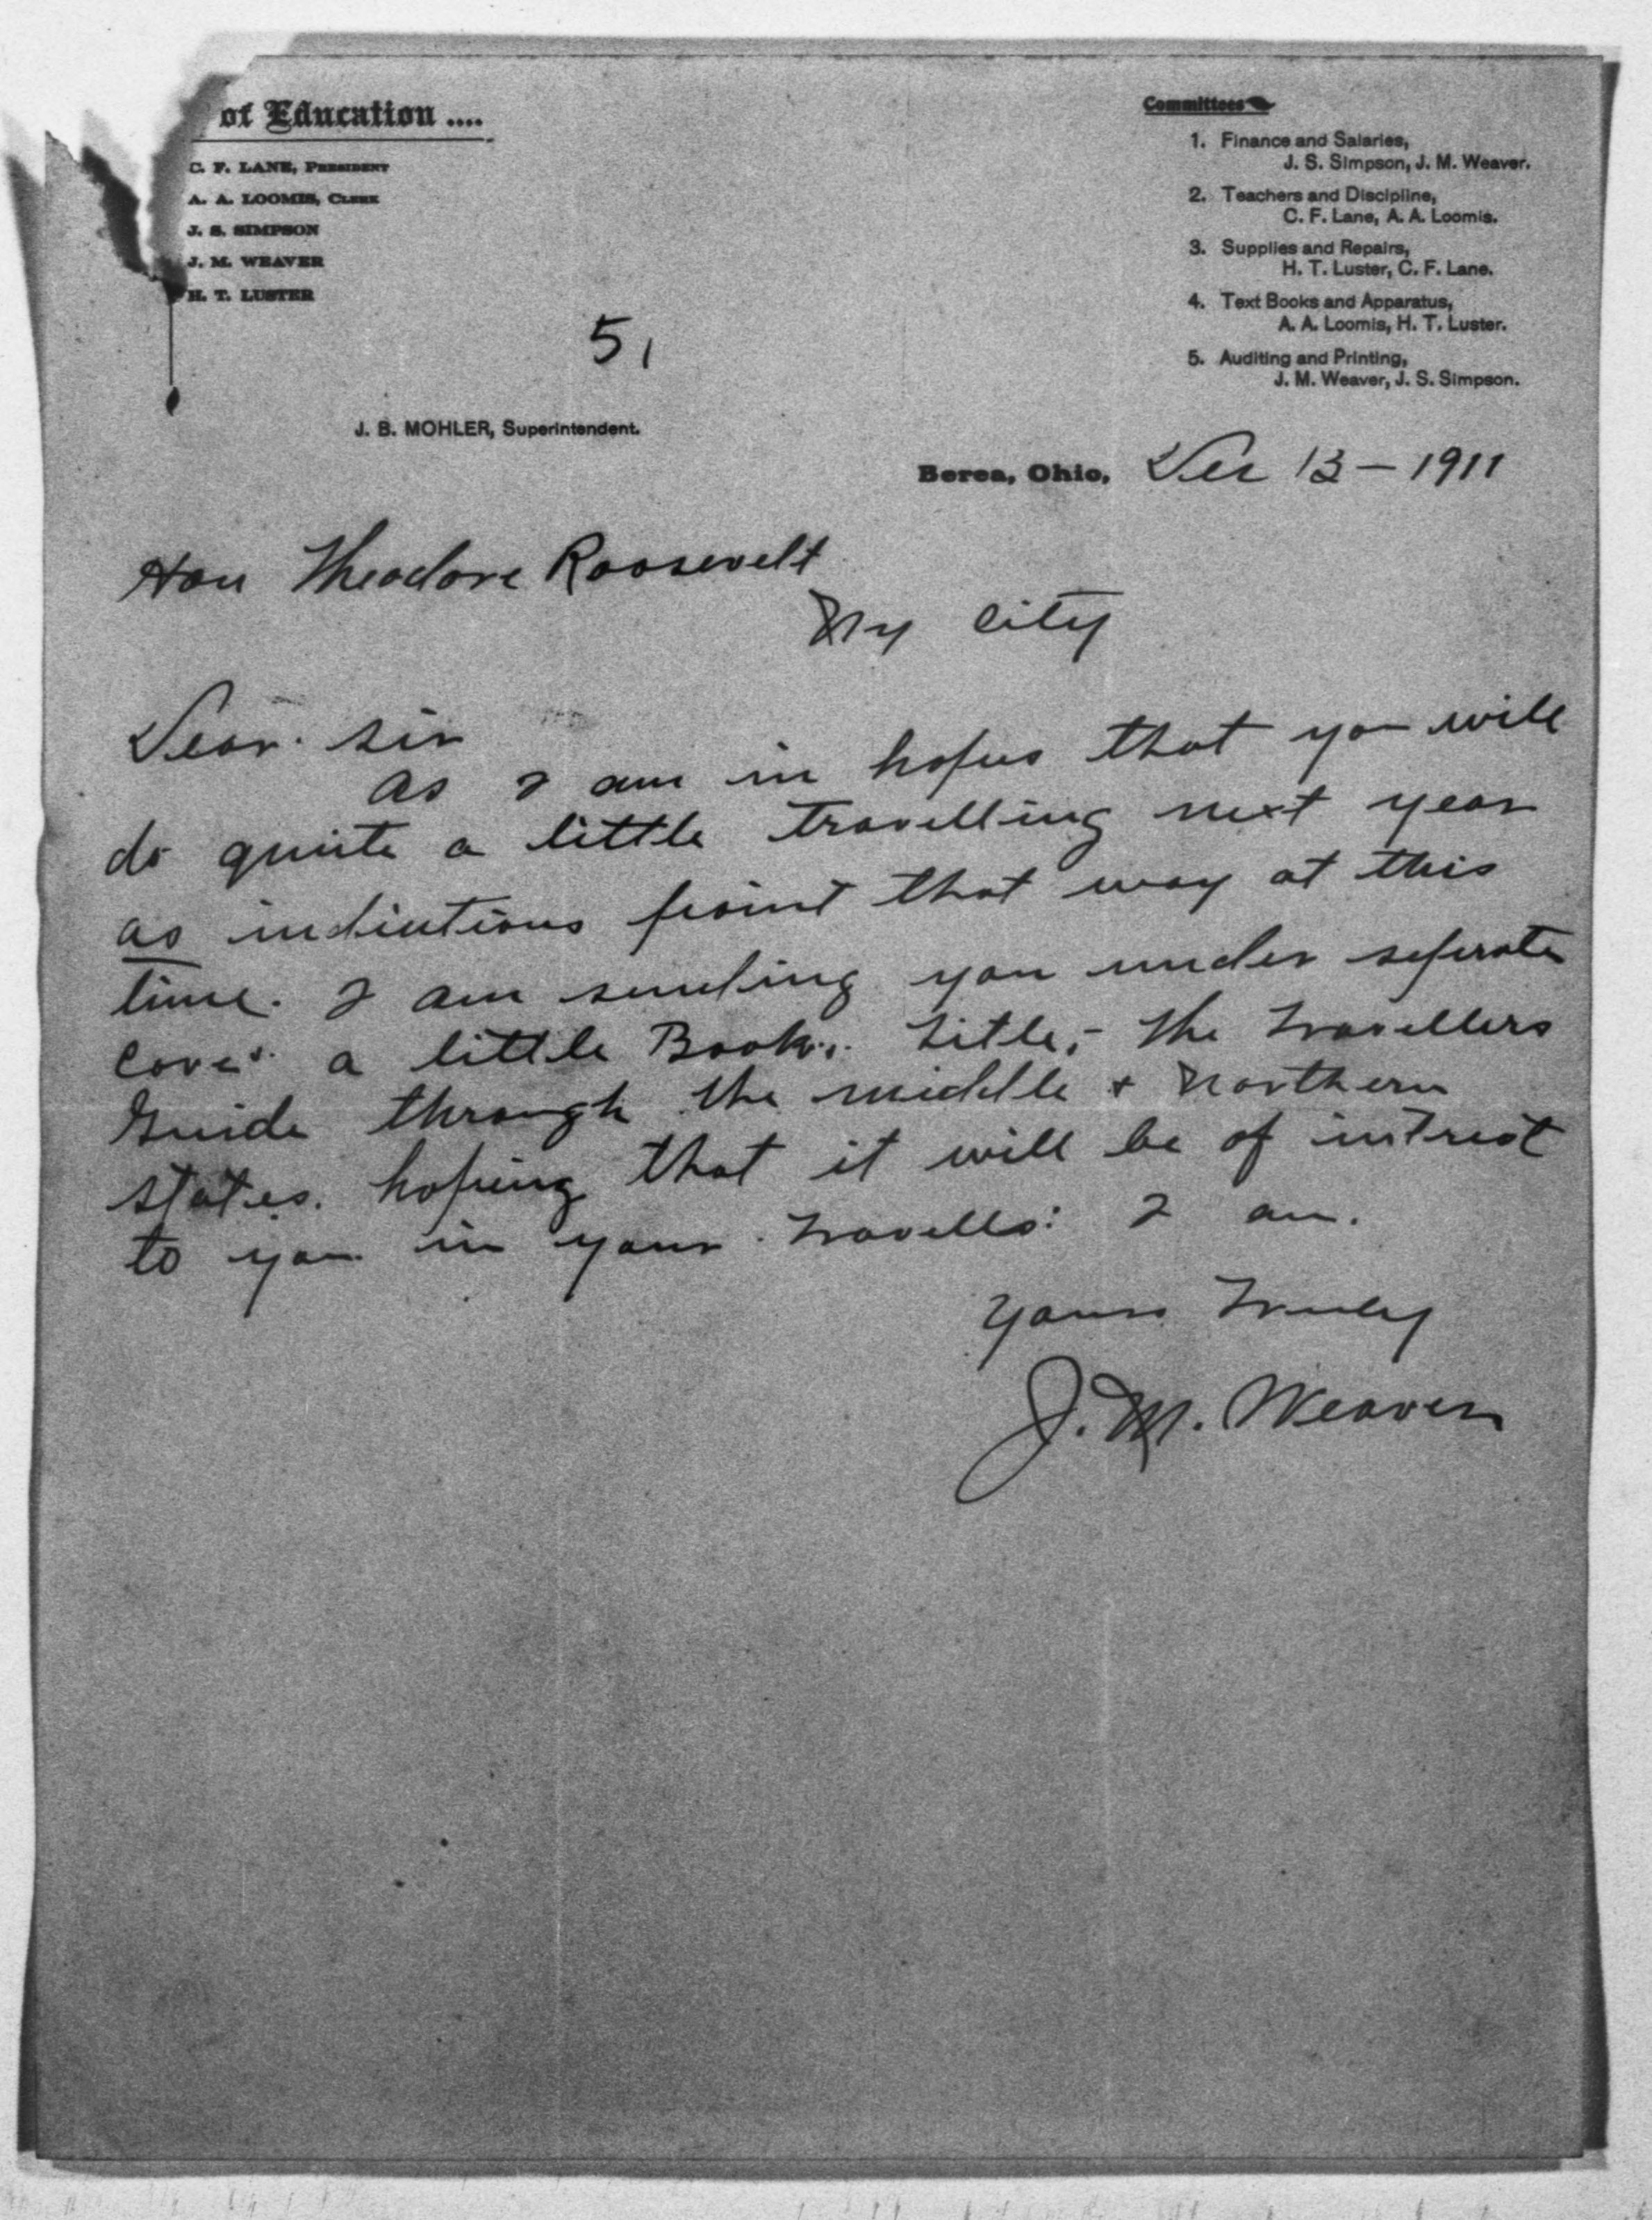 of Education ....
C. F. LANE, PRESIDENT
A. A. LOOMIS, CLERK
J. S. SIMPSON
J. M. WEAVER
H. T. LUSTER
Committees
1. Finance and Salaries,
J. S. Simpson, J. M. Weaver.
2. Teachers and Discipline,
C. F. Lane, A. A. Loomis.
3. Supplies and Repairs,
H. T. Luster, C. F. Lane.
4. Text Books and Apparatus,
A. A. Loomis, H. T. Luster.
5. Auditing and Printing,
J. M. Weaver, J. S. Simpson.
5,
J. B. MOHLER, Superintendent.
Berea, Ohio, Dec 13 - 1911
Hon Theodore Roosevelt
Ny City
Dear sir
As I am in hopes that you will
do quite a little travelling next year
as indications point that way at this
time. I am sending you under seperate
cover a little Book. Title,- The Travellers
Guide through the middle + Northern
states. hoping that it will be of intrest
to you in your travells: I am.
Yours Truly
J. M. Weaver